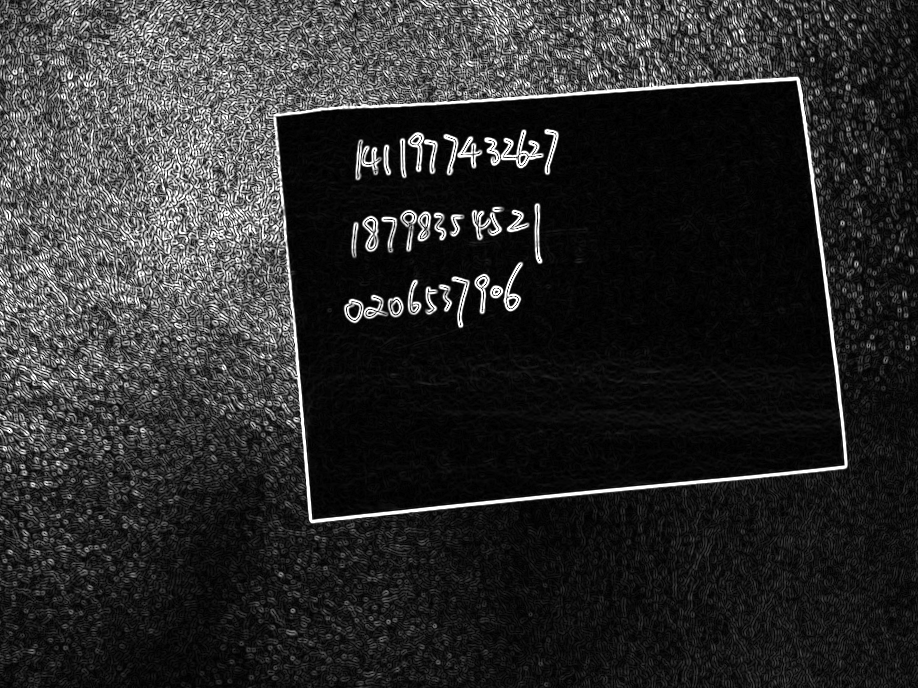 141197743627
18798354521
0206537906